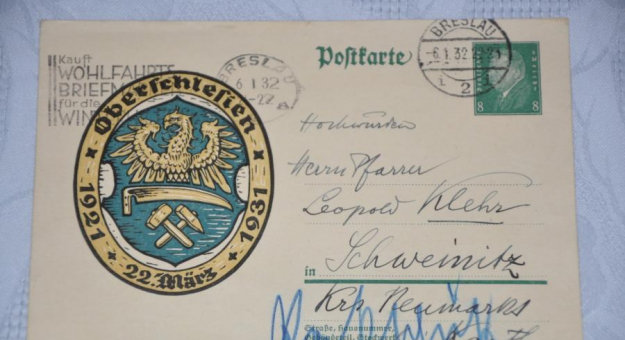 Kauft
WOHLFAHRTS
BRIEFM
für die
WIN
BRESLAU
6 1 32
-22
A
Postkarte
BRESLAU
-6.1.32 22
1 2
8 8
Oberschlesien
1921 1931
22. März
Hochwürden
Herrn Pfarrer
Leopold Klehr
in Schweinitz
Krs Neumarkt
Straße, Hausnummer,
Gebäudeteil, Stockwerk